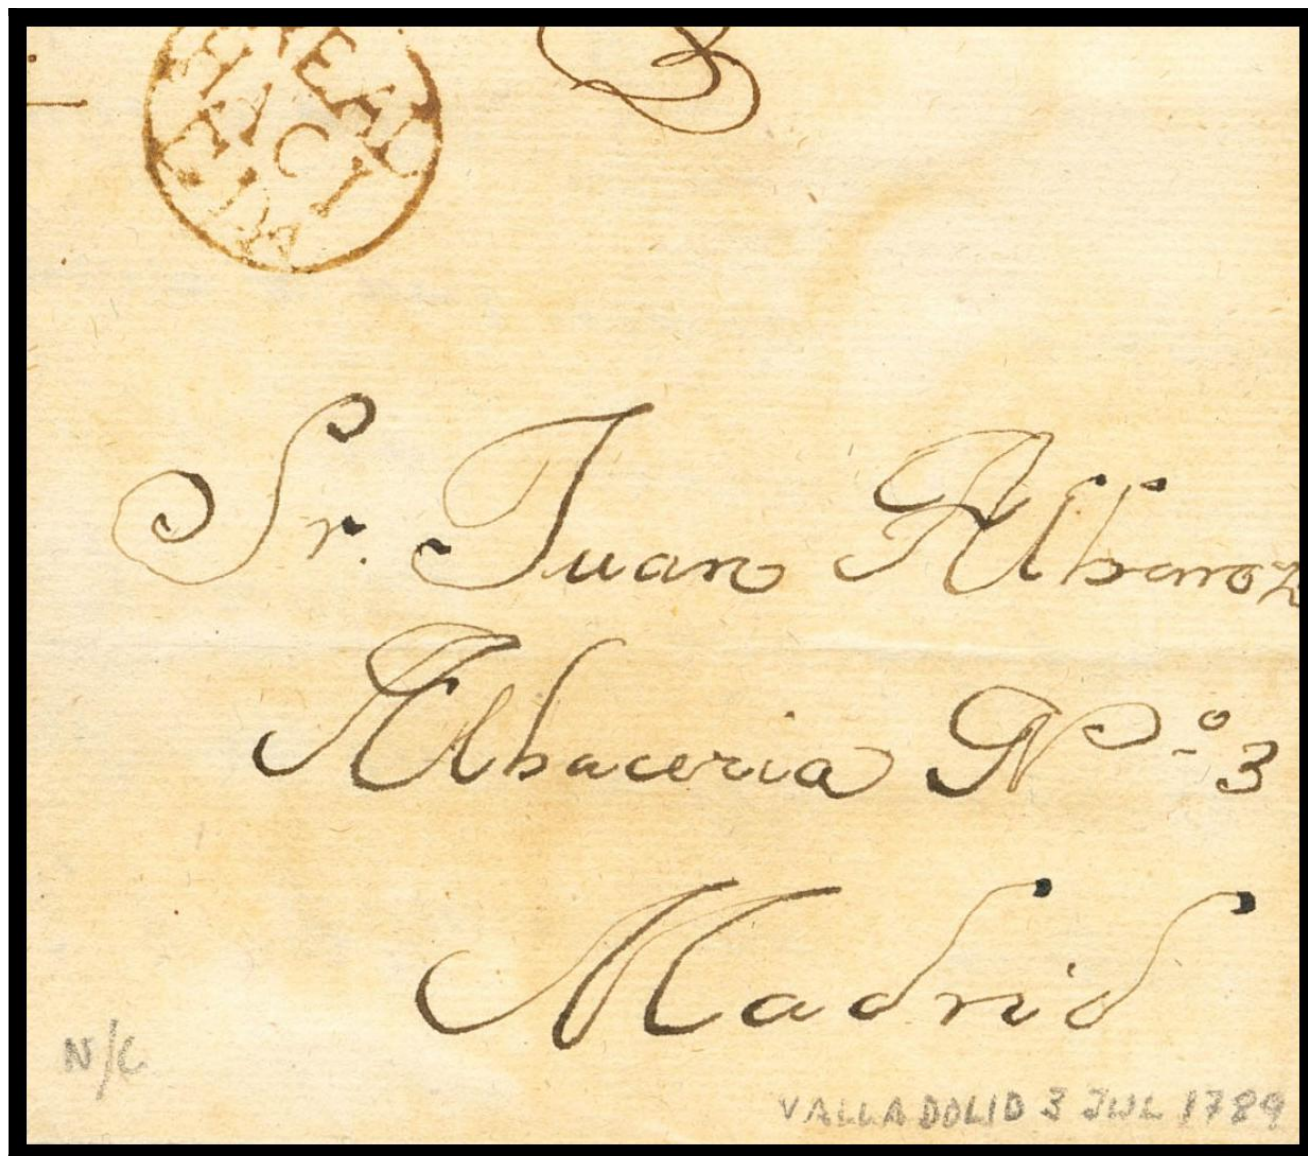 Sr. Juan Albaroz
Albaceria Nº 3
Madrid
N/C
VALLADOLID 3 JUL 1789